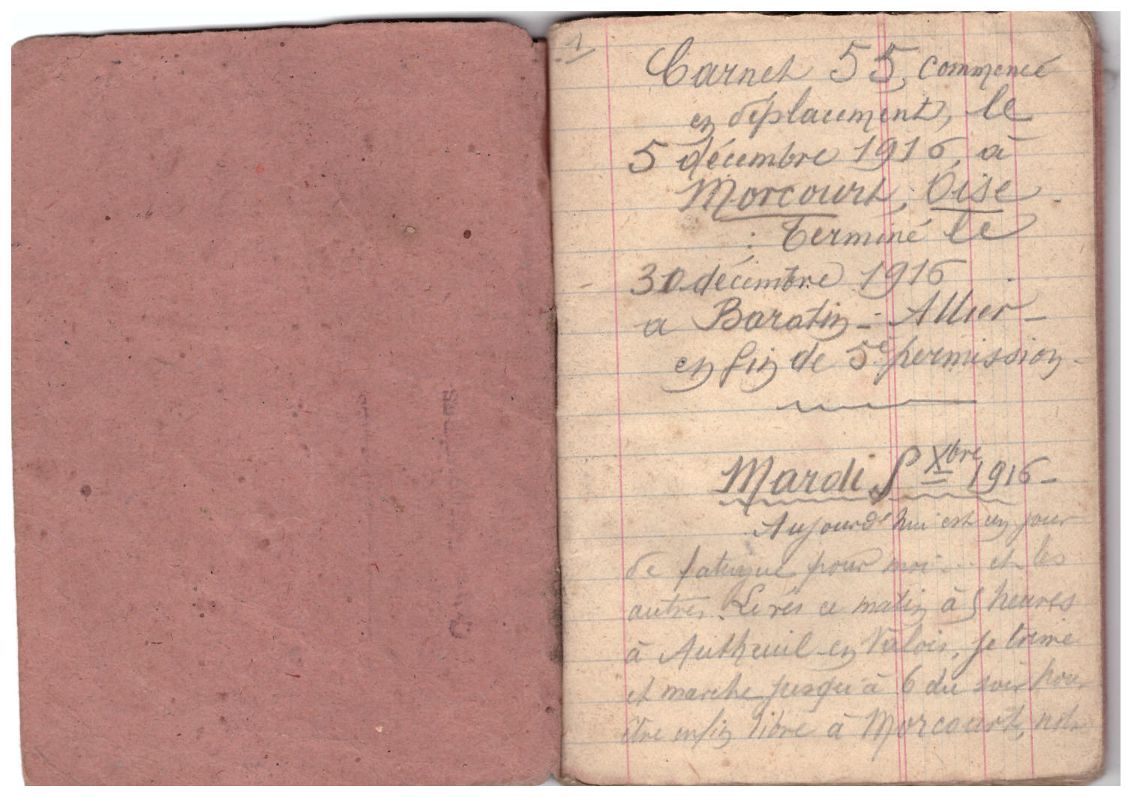 1/
Carnet 55, commencé
en déplacement, le
5 décembre 1916, à
Morcourt, Oise
: Terminé le
30 décembre 1916
a Baratin - Allier -
en fin de 5e permission -
Mardi 5 Xbre 1916 -
Aujourd'hui est un jour
de fatigue pour moi... et les
autres. Levés ce matin à 5 heures
à Autheuil en Valois, je trime
et marche jusqu'à 6 du soir pour
être enfin libre à Morcourt, notre